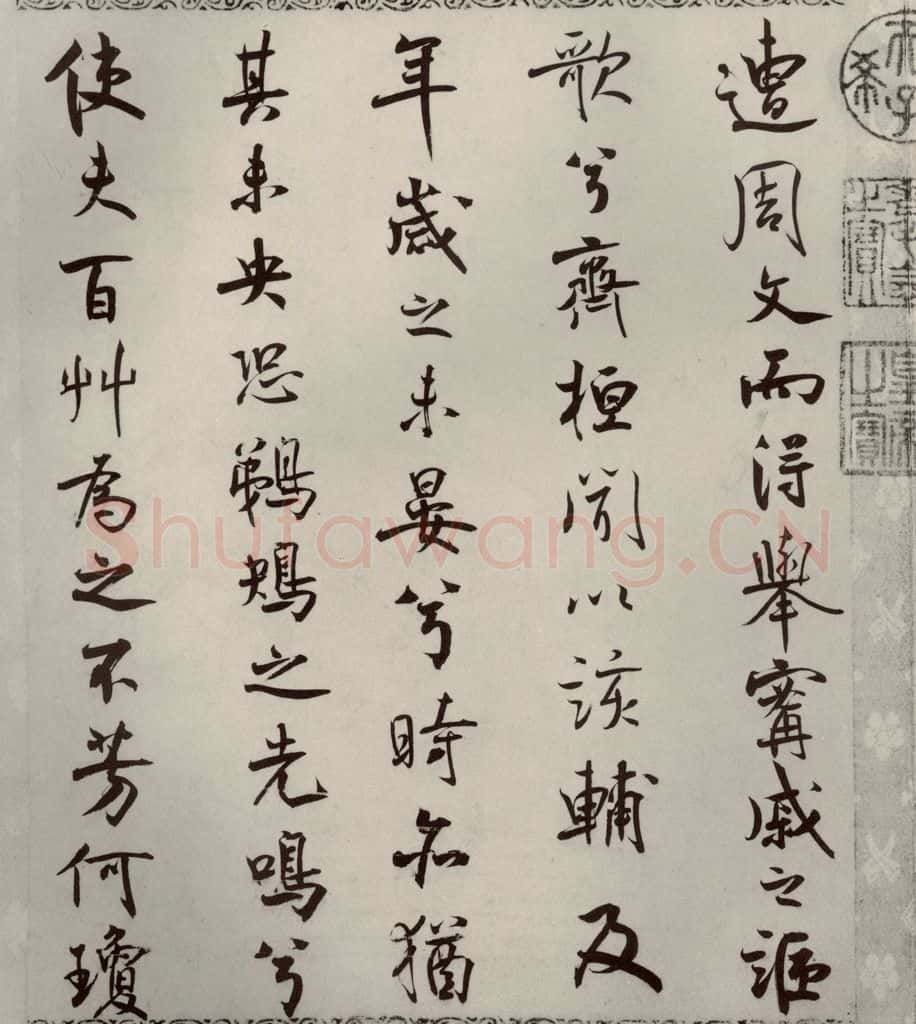 遭周文而得舉寗戚之謳
歌兮齊桓聞以該輔及
年歲之未晏兮時亦猶
其未央恐鵜鴂之先鳴兮
使夫百艸為之不芳何瓊
Shufawang.CN